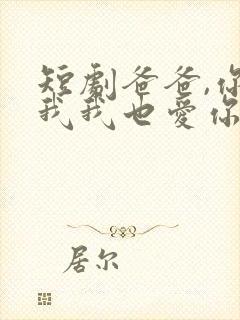 短剧爸爸,你
我我也爱你
居尔